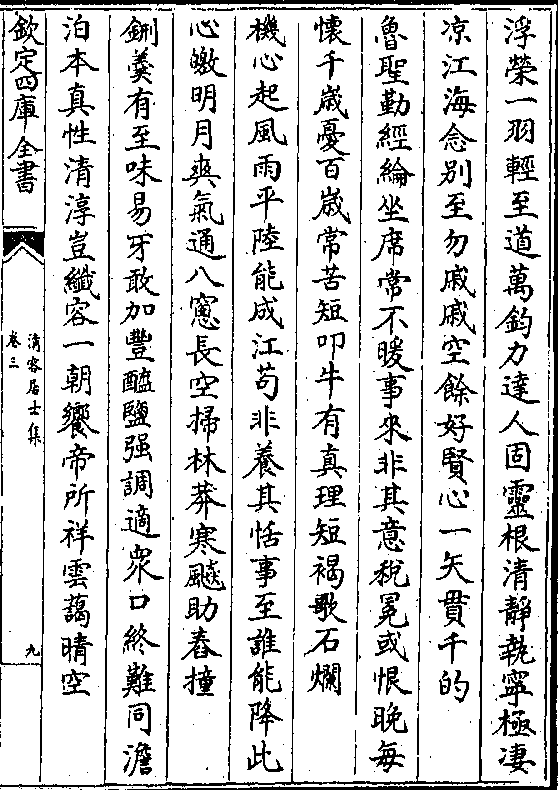 浮榮一羽輕至道萬鈞力達人固靈根清靜執寧極淒
凉江海念别至勿戚戚空餘好賢心一矢貫千的
魯聖勤經綸坐席常不暖事來非其意稅冕或恨晚每
懷千歲憂百歲常苦短叩牛有真理短褐歌石爛
機心起風雨平陸能成江苟非養其恬事至誰能降此
心皦明月爽氣通八窻長空掃林莽寒飈助舂撞
鉶羹有至味易牙敢加豐醯鹽强調適衆口終難同澹
泊本真性清淳豈纖容一朝饗帝所祥雲藹晴空
欽定四庫全書
清容居士集
卷三
九